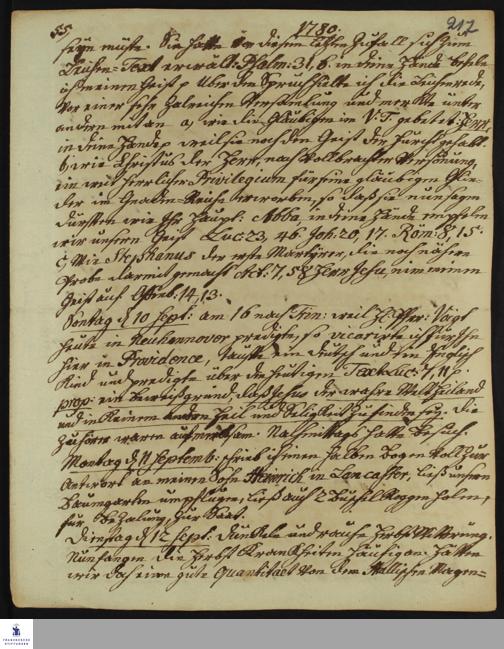 55. 1780. 212
seyn müste. Sie hatte vor diesem letzten Zufall sich zum
Leichen-Text erwält: Psalm: 31, 6. in deine Hände befehle
ich meinen Geist p Über den Spruch hielte ich die Leichenrede,
vor einer sehr zalreichen Versamlung und merkte unter
andern mit an a, wie die Gläubigen im V. T. gebetet: Herr,
in deine Hände p weil sie noch den Geist der Furcht gehabt
b, wie Christus der Herr, nach vollbrachter Versönung,
ein weit herrlicher Privilegium für seine gläubigen Glie-
der im Gnaden-Reiche erworben, so dass sie nun sagen
durften wie Ihr Haupt: Abba, in deine Hände empfehlen
wir unsern Geist Luc: 23, 46. Joh: 20, 17. Röm: 8, 15.
c, Wie Stephanus der erste Martyrer, die noch nähere
Probe damit gemacht Act: 7, 58 Herr Jesu, nim meinen
Geist auf. Offenb: 14, 13.
Sontag d 10 Sept: am 16 nach Trin: weil H. Pfr: Vogt
heute in Neuhannover predigte, so vicarirte ich für Ihn
hier in Providence, taufte ein Deutsch und ein Englisch
Kind und predigte über den heutigen Text Luc: 7, 11 p.
prop: ein Beweissgrund, dass Jesus der wahre Weltheiland
und in Keinem andern Heil und Seligkeit zu finden sey. Die
Zuhörer waren aufmerksam. Nachmittags hatte Besuch.
Montag d 11 Septemb: schrieb ich einen halben Bogen voll zur
Antwort an meinen Sohn Heinrich in Lancaster, liess unsern
Baumgarten umpflügen, liess auch 2 Buschel Roggen holen,
für Bezalung, zur Saat.
Dienstag d 12 Sept. dunkele und rauhe Herbst Witterung.
Nun fangen die Herbst Krankheiten häufig an. Hätten
wir doch eine gute Quantitaet von den Hallischen Magen=
FRANCKESCHE
STIFTUNGEN